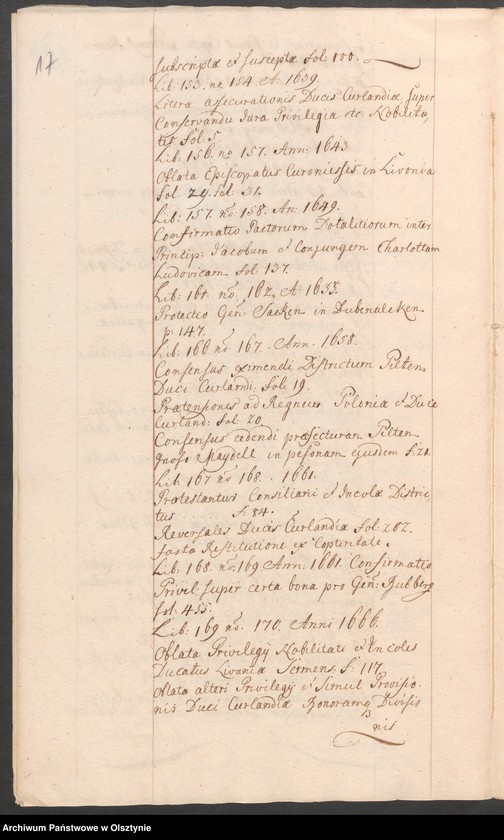 17
subscriptæ et susceptæ fol: 100.
Lib: 153. no 154. A. 1639.
Litera assecurationis Ducis Curlandiæ super
Conservandu Jura Privilegia etc Nobilita,
tis fol: 5.
Lib: 156. no 157. Ann: 1643
Oblata Episcopatus Curoniessis in Livonia
fol 29. fol: 31.
Lib: 157. no: 158. An: 1649.
Confirmatio Pactorum Dotalitiorum inter
Princip: Jacobum et Conjungem Charlottam
Ludovicam fol: 137.
Lib: 161. no. 162, A: 1653.
Protectio Gen: Sacken in Dubenalcken
p: 147.
Lib: 166 no 167. Ann. 1658.
Consensus eximendi Districtum Pilten
Duci Curlandi: fol: 19.
Prætensiones ad Regnum Poloniæ et Duce
Curland: fol 20
Consensus cedendi præfecturam Pilten
Gnoso Maydell in personam ejusdem f: 21.
Lib: 167 no 168. 1661.
Protestantur Consiliarii et Incolæ Distric
tus f: 84.
Reversales Ducis Curlandiæ fol: 202.
facta Restitutione ex
Lib: 168. no: 169 Ann: 1661. Confirmatio
Privil: super certa bona pro Gen: Budberg
fol: 455.
Lib: 169 no. 170. Anni 1666.
Oblata Privilegij Nobilitati et Incolis
Ducatus Livoniæ f: 117
oblata alteri Privilegij et Simul Provisio
nis Duci Curlandiæ Divisio
13
nis
Archiwum Państwowe w Olsztynie